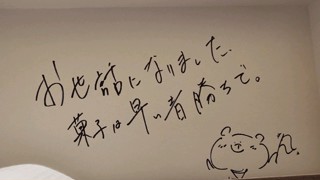 お世話になりました.
菓子は早い者勝ちで。